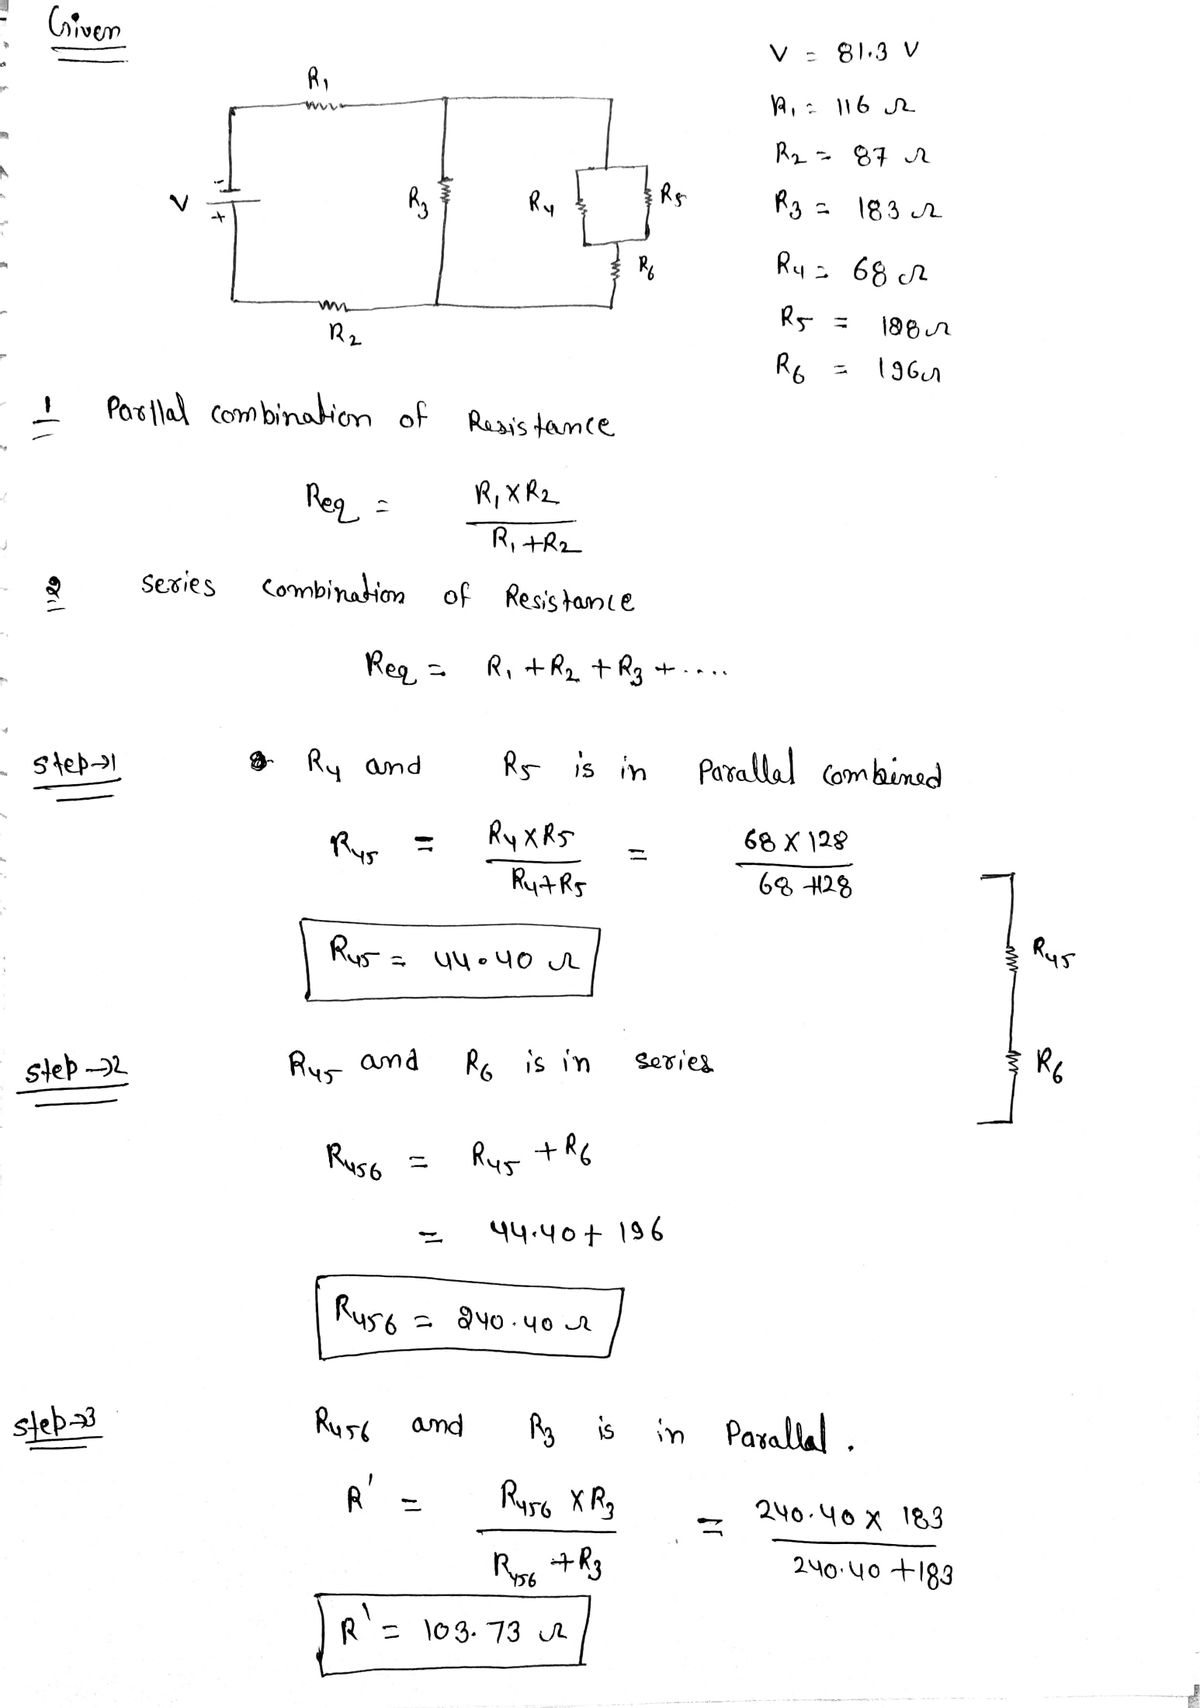 Given
V = 81.3 V
R₁ = 116 Ω
R₂ = 87 Ω
R₃ = 183 Ω
R₄ = 68 Ω
R₅ = 188 Ω
R₆ = 196 Ω
R₁
V
-
+
R₃
R₄
R₅
R₆
R₂
1 Parllal combination of Resistance
Req = R₁ X R₂ / R₁ + R₂
2 series combination of Resistance
Req = R₁ + R₂ + R₃ + ....
Step→1 R₄ and R₅ is in Parallal combined
R₄₅ = R₄ X R₅ / R₄ + R₅ = 68 X 128 / 68 + 128
R₄₅ = 44.40 Ω
R₄₅
R₆
Step→2 R₄₅ and R₆ is in series
R₄₅₆ = R₄₅ + R₆
= 44.40 + 196
R₄₅₆ = 240.40 Ω
Step→3 R₄₅₆ and R₃ is in Parallal.
R' = R₄₅₆ X R₃ / R₄₅₆ + R₃ = 240.40 X 183 / 240.40 + 183
R' = 103.73 Ω